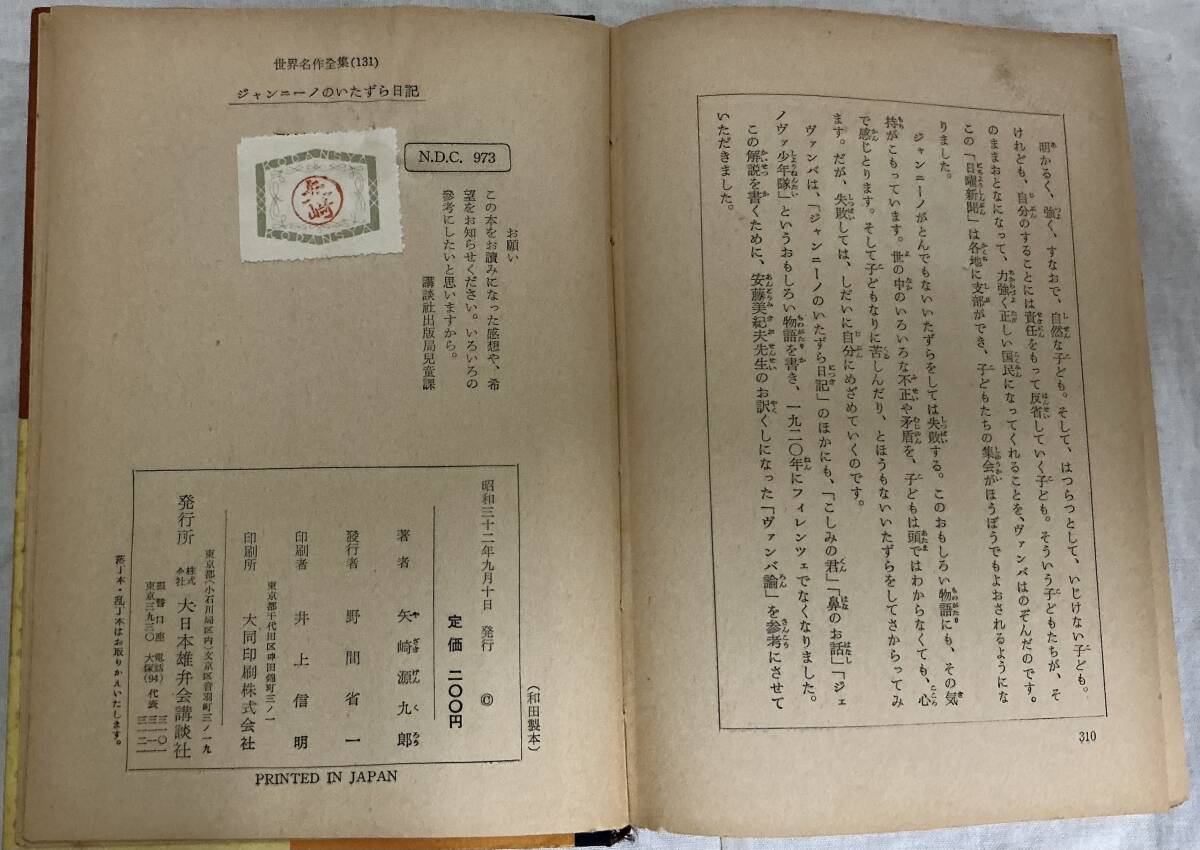 明かるく、強く、すなおで、自然な子ども。そして、はつらつとして、いじけない子ども。
けれども、自分のすることには責任をもって反省していく子ども。そういう子どもたちが、そ
のままおとなになって、力強く正しい国民になってくれることを、ヴァンバはのぞんだのです。
この「日曜新聞」は各地に支部ができ、子どもたちの集会がほうぼうでもよおされるようにな
りました。
ジャンニーノがとんでもないいたずらをしては失敗する。このおもしろい物語にも、その気
持がこもっています。世の中のいろいろな不正や矛盾を、子どもは頭ではわからなくても、心
で感じとります。そして子どもなりに苦しんだり、とほうもないいたずらをしてさからってみ
ます。だが、失敗しては、しだいに自分にめざめていくのです。
ヴァンバは、「ジャンニーノのいたずら日記」のほかにも、「こしみの君」「鼻のお話」「ジェ
ノヴァ少年隊」というおもしろい物語を書き、一九二〇年にフィレンツェでなくなりました。
この解説を書くために、安藤美紀夫先生のお訳しになった「ヴァンバ論」を参考にさせて
いただきました。
310
世界名作全集(131)
ジャンニーノのいたずら日記
KODANSYA
矢崎
KODANSYA
N.D.C. 973
お願い
この本をお讀みになった感想や、希
望をお知らせください。いろいろの
参考にしたいと思いますから。
講談社出版局兒童課
(和田製本)
昭和三十二年九月十日 発行 ©
定価 二〇〇円
著者 矢崎源九郎
發行者 野間省一
東京都千代田区神田錦町三ノ一
印刷者 井上信明
印刷所 大同印刷株式会社
東京都(小石川局区内)文京区音羽町三ノ一九
発行所 株式会社 大日本雄弁会講談社
振替口座 東京三九三〇
電話 大塚(94) 代表 三一〇一 三一一一 三一二一
落丁本・乱丁本はお取りかえいたします。
PRINTED IN JAPAN